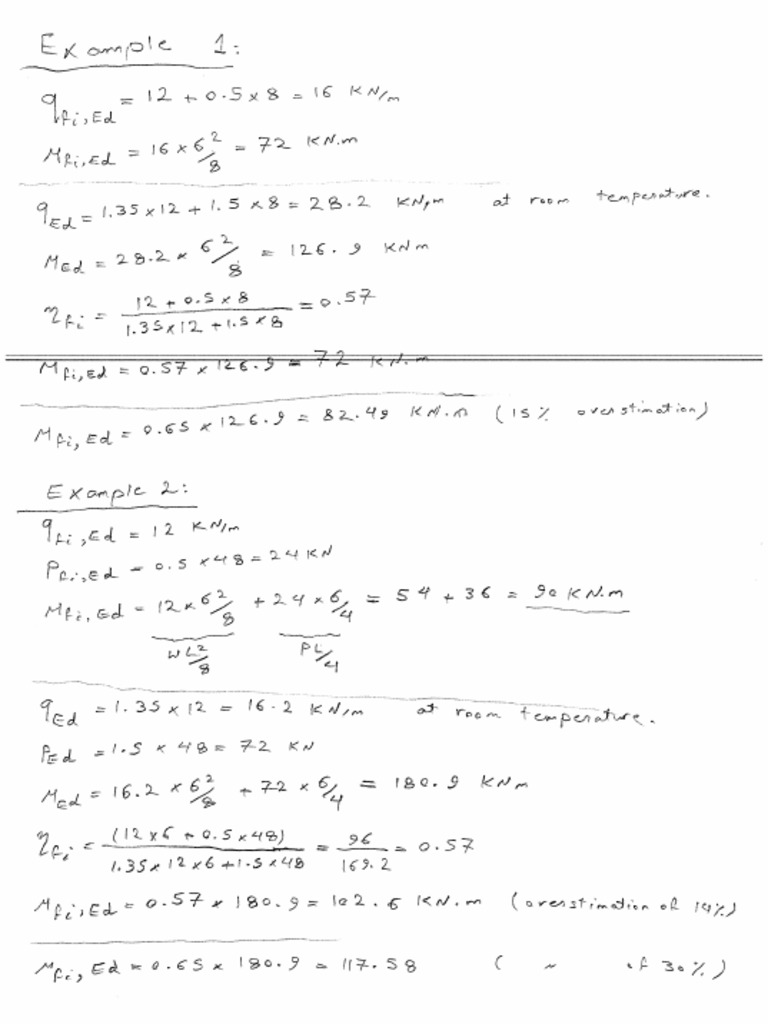 Example 1:
q_fi,Ed = 12 + 0.5 × 8 = 16 KN/m
M_fi,Ed = 16 × 6²/8 = 72 KN.m
q_Ed = 1.35 × 12 + 1.5 × 8 = 28.2 KN/m at room temperature.
M_Ed = 28.2 × 6²/8 = 126.9 KNm
η_fi = (12 + 0.5 × 8)/(1.35 × 12 + 1.5 × 8) = 0.57
M_fi,Ed = 0.57 × 126.9 = 72 KN.m
M_fi,Ed = 0.65 × 126.9 = 82.49 KN.m (15% overstimation)
Example 2:
q_fi,Ed = 12 KN/m
P_fi,Ed = 0.5 × 48 = 24 KN
M_fi,Ed = 12 × 6²/8 + 24 × 6/4 = 54 + 36 = 90 KN.m
WL²/8 PL/4
q_Ed = 1.35 × 12 = 16.2 KN/m at room temperature.
P_Ed = 1.5 × 48 = 72 KN
M_Ed = 16.2 × 6²/8 + 72 × 6/4 = 180.9 KNm
η_fi = (12 × 6 + 0.5 × 48)/(1.35 × 12 × 6 + 1.5 × 48) = 96/169.2 = 0.57
M_fi,Ed = 0.57 × 180.9 = 102.6 KN.m (overstimation of 14%)
M_fi,Ed = 0.65 × 180.9 = 117.58 ( ~ of 30%)